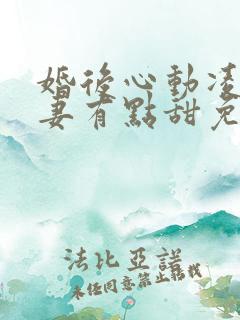 婚後心動凌
妻有點甜免
法比亞諾
未任同意禁止轉載